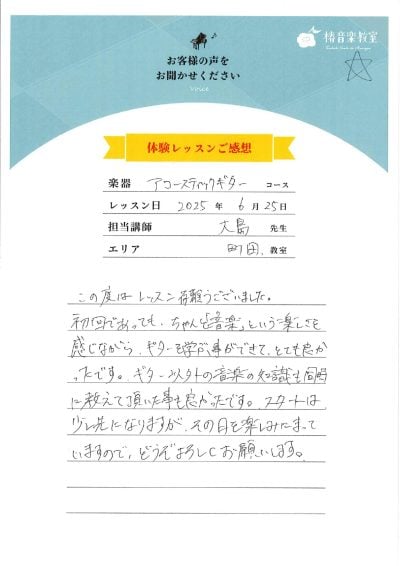 椿音楽教室
お客様の声を
お聞かせください
Voice
体験レッスンご感想
楽器 アコースティックギター コース
レッスン日 2025 年 6 月 25 日
担当講師 大島 先生
エリア 町田 教室
この度はレッスン有難うございました。
初回であっても、ちゃんと「音楽」という楽しさを
感じながら、ギターを学ぶ事ができて、とても良か
ったです。ギター以外の音楽の知識も同時
に教えて頂いた事も良かったです。スタートは
少し先になりますが、その日を楽しみにまって
いますので、どうぞよろしくお願いします。